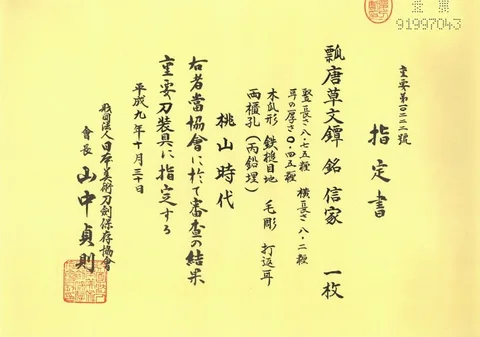 91997043
重要第一〇二二二號
指定書
瓢唐草文鐔 銘 信家 一枚
竪長さ八・七五糎 横長さ八・二糎
耳の厚さ〇・四五糎
木瓜形 鉄槌目地 毛彫 打返耳
両櫃孔(両鉛埋)
桃山時代
右者當協會に於て審査の結果
重要刀装具に指定する
平成九年十月三十日
財団法人日本美術刀剣保存協會
會長 山中貞則